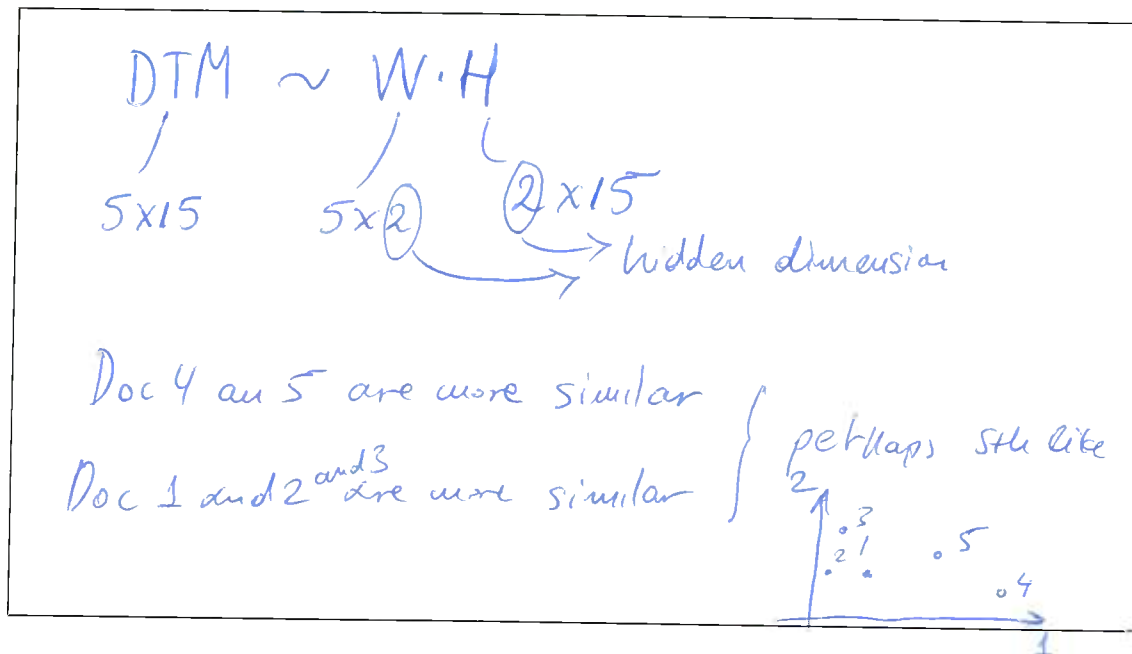 DTM ~ W·H
5x15 5x2 2x15
hidden dimension
Doc 4 an 5 are more similar
Doc 1 and 2 and 3 are more similar
perhaps sth like
2
3
2 1
5
4
1